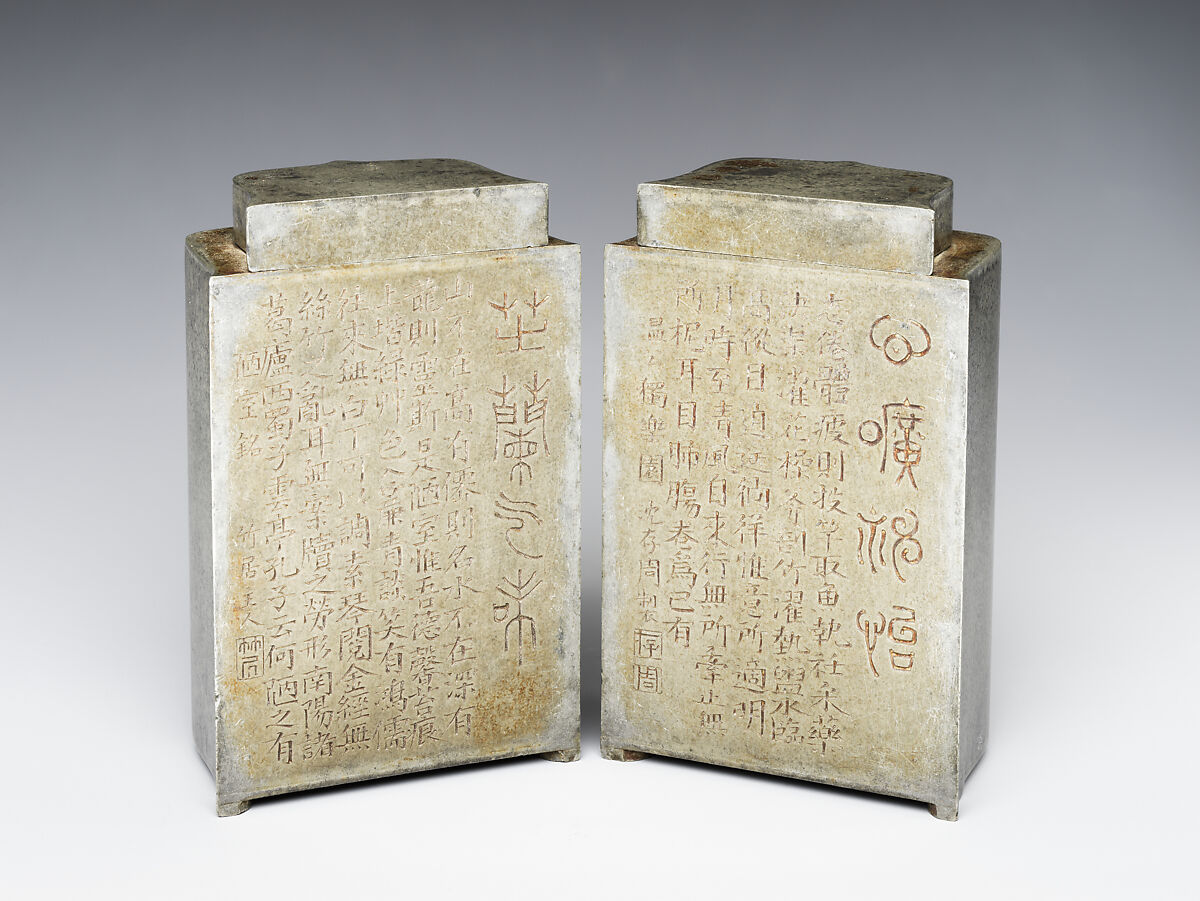 心曠神怡
志倦體疲則投竿取魚執衽采藥
決渠灌花操斧剖竹濯熱盥水臨
高縱目逍遙徜徉惟意所適明
月時至清風自來行無所牽止無
所柅耳目肺腸卷爲己有
温公獨樂園 沈存周製 存周
芝蘭之味
山不在高有僊則名水不在深有
龍則靈斯是陋室惟吾德馨苔痕
上堦綠艸色入簾青談笑有鴻儒
往來無白丁可以調素琴閱金經無
絲竹之亂耳無案牘之勞形南陽諸
葛廬西蜀子雲亭孔子云何陋之有
陋室銘 竹居主人